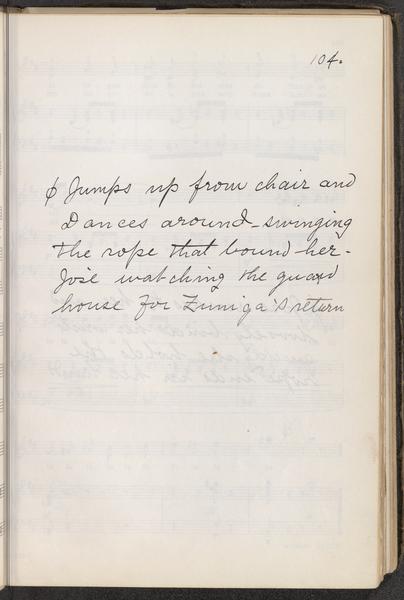 104.
φ Jumps up from chair and
Dances around swinging
the rope that bound her-
José watching the guard
house for Zuniga's return